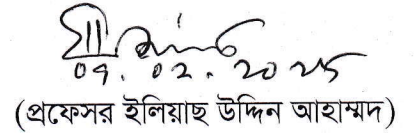 09.02.2025
(প্রফেসর ইলিয়াছ উদ্দিন আহাম্মদ)